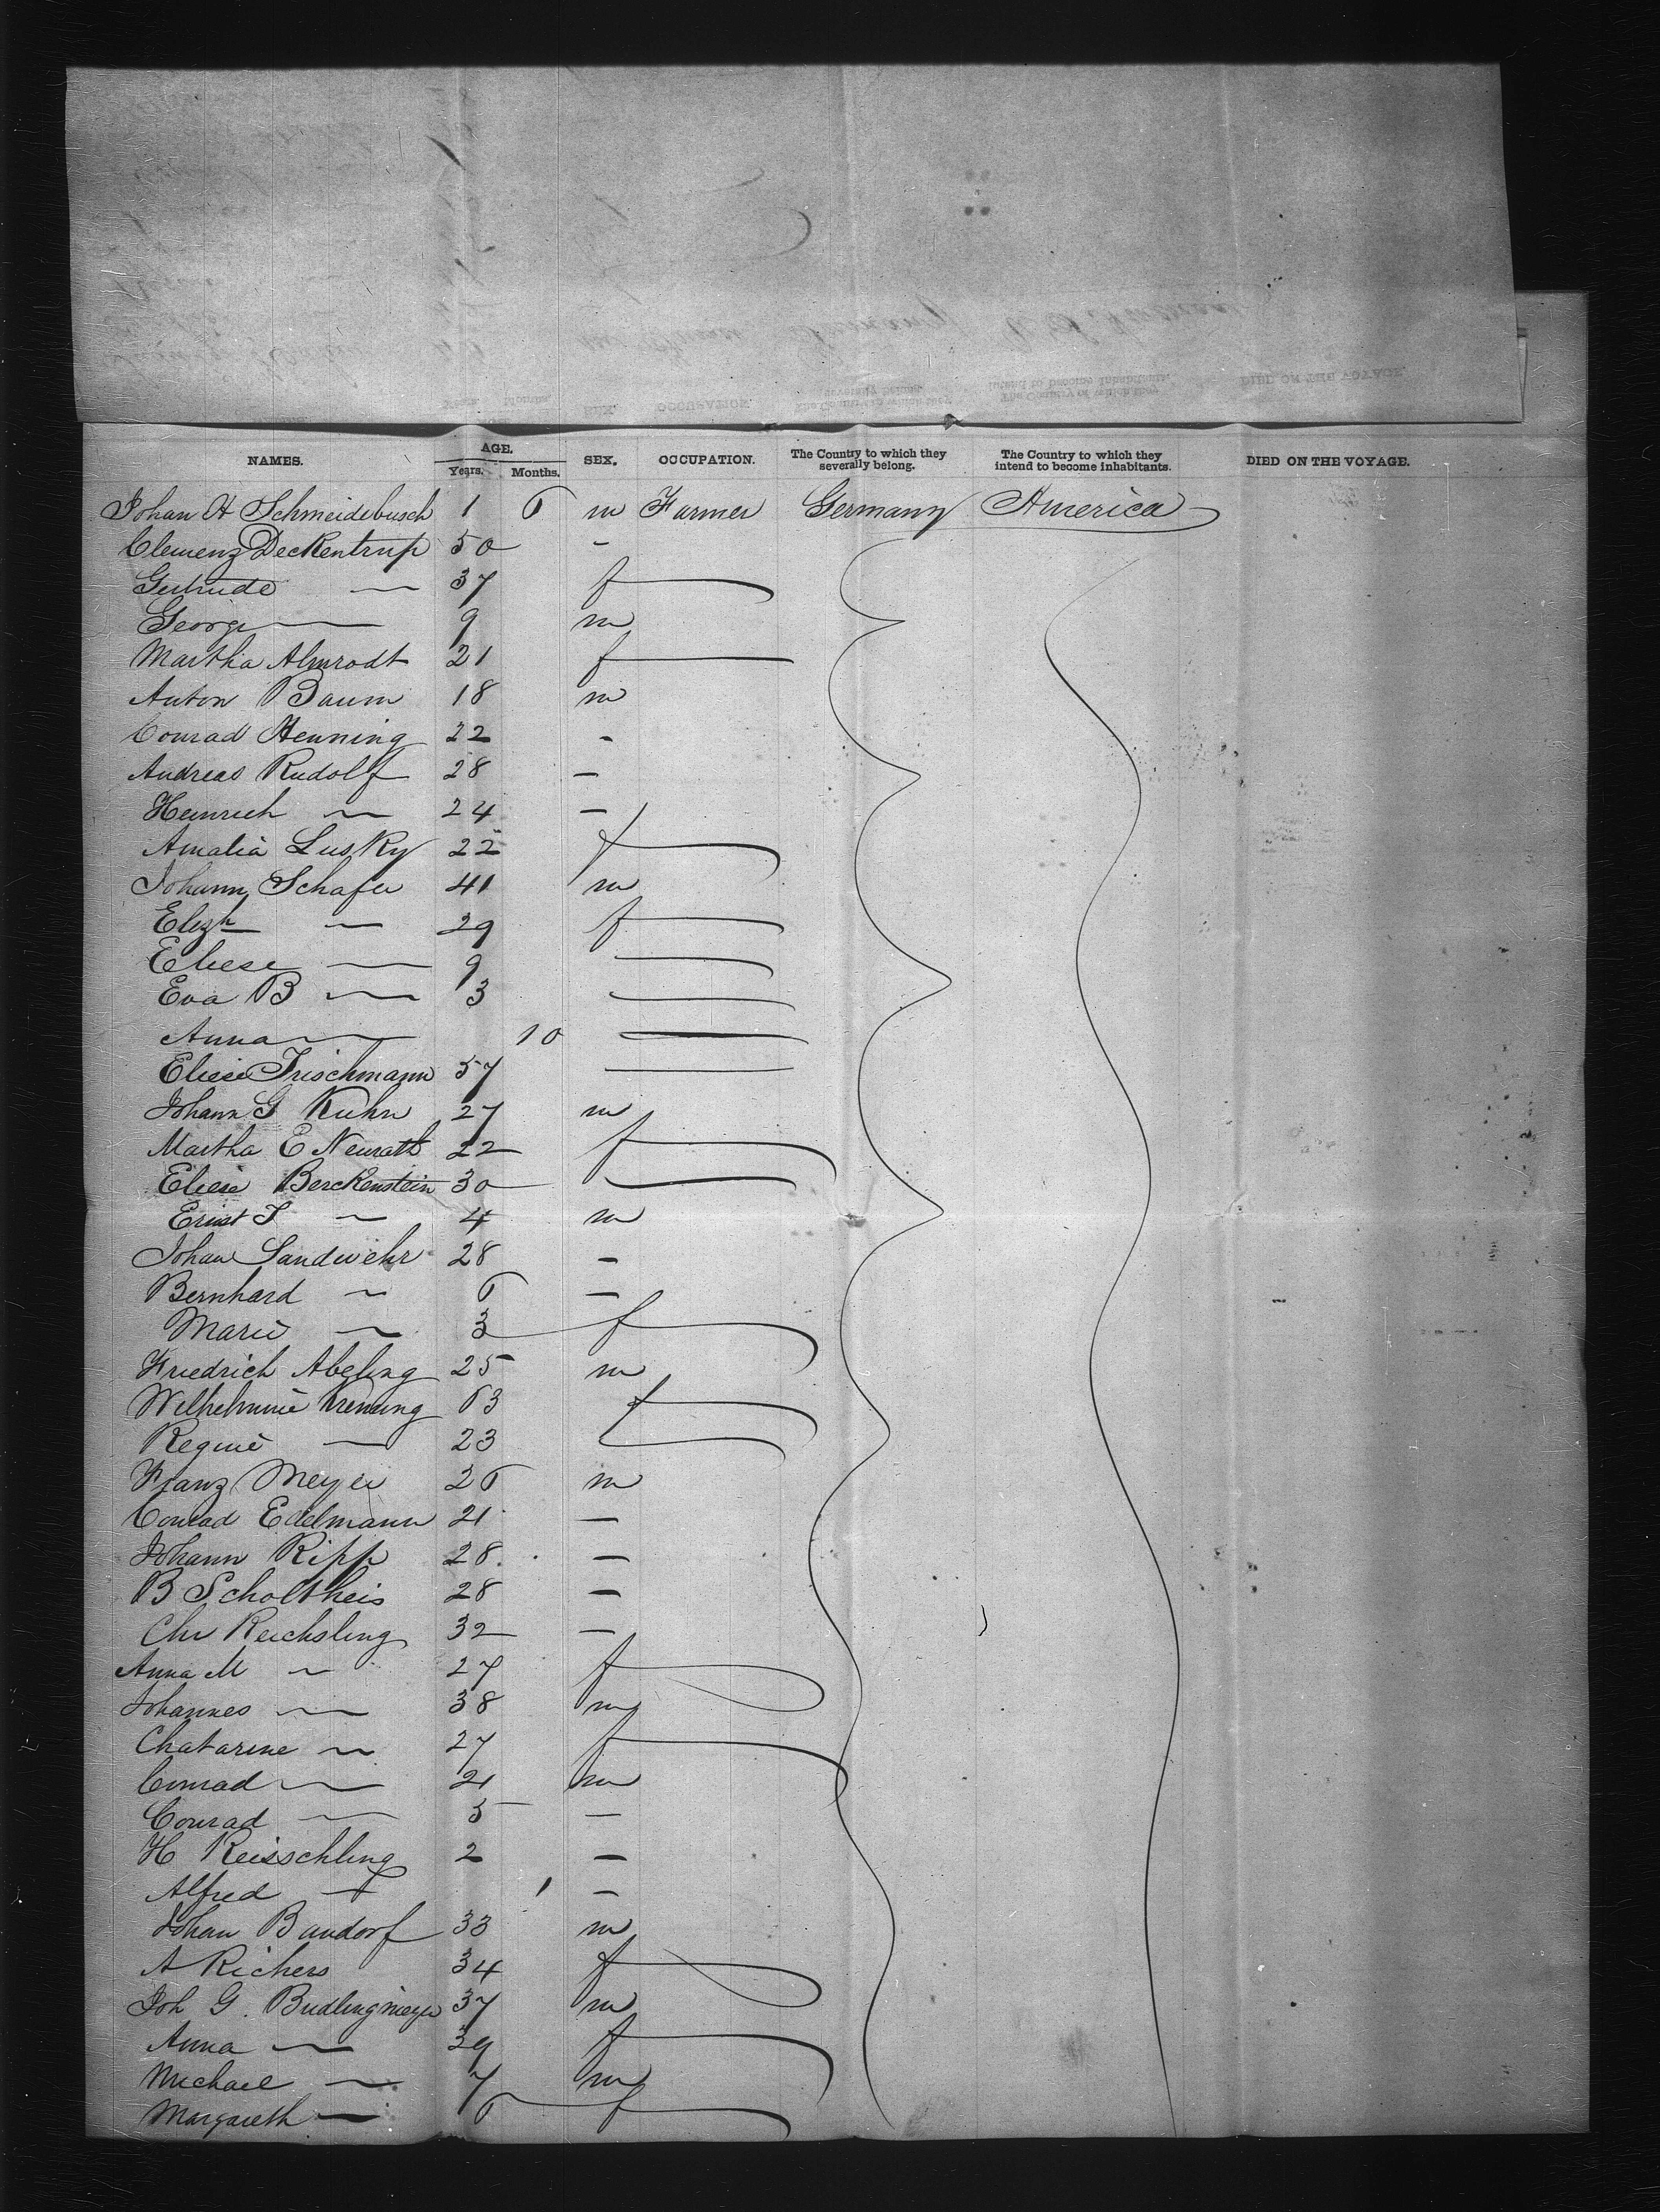 NAMES. AGE. Years. Months. SEX. OCCUPATION. The Country to which they severally belong. The Country to which they intend to become inhabitants. DIED ON THE VOYAGE.
Johan H Schmeidebusch 1 6 m Farmer Germany America
Clemenz Deckentrup 50 –
Gertrude — 37 f
George — 9 m
Martha Almrodt 21 f
Anton Baum 18 m
Conrad Henning 22 –
Andreas Rudolf 28 –
Heinrich — 24 –
Amalia Lusky 22 f
Johann Schafer 41 m
Elizh — 29 f
Eliese — 9 —
Eva B — 3 —
Anna — 10 —
Eliese Frischmann 57 —
Johann G Kuhn 27 m
Martha E Neurath 22 f
Eliese Berckenstein 30 —
Ernst J — 4 m
Johan Landwehr 28 –
Bernhard — 6 –
Marie — 3 f
Friedrich Abeling 25 m
Wilhelmine 63 f
Regine — 23
Franz Meyer 26 m
Conrad Edelmann 21 –
Johann Ripp 28 –
B Scholtheis 28 –
Chr Reichsling 32 –
Anna M — 27 f
Johannes — 38 m
Chatarine — 27 f
Conrad — 21 m
Conrad — 5 –
H Reisschling 2 –
Alfred — 1 –
Johan Bandorf 33 m
A Richers 34 f
Joh G. Budlingmeyer 37 m
Anna — 39 f
Michael — 7 m
Margareth — 6 f